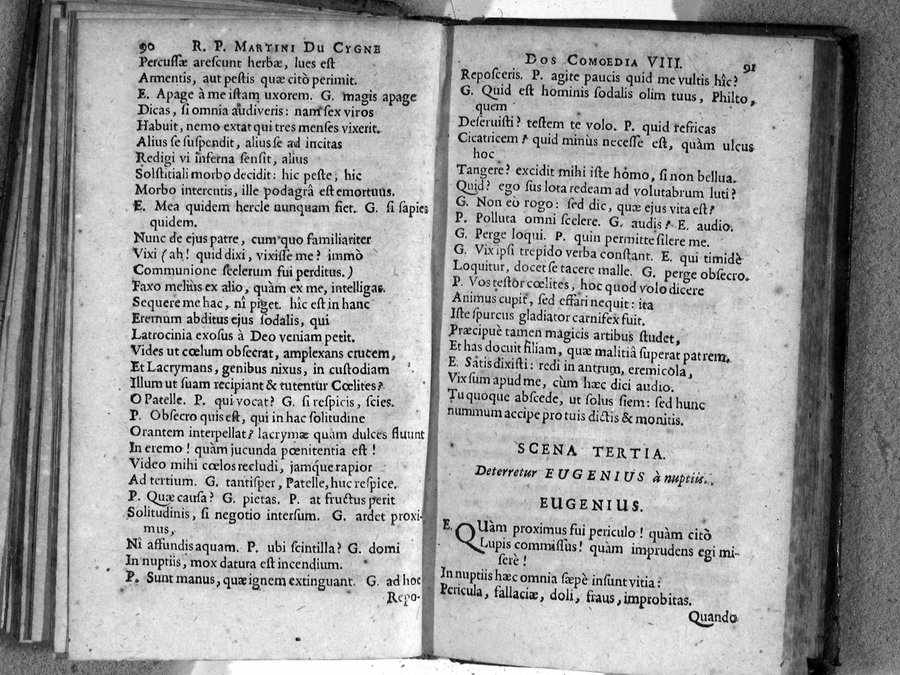 90 R. P. MARTINI DU CYGNE
Percussæ arescunt herbæ, lues est
Armentis, aut pestis quæ citò perimit.
E. Apage à me istam uxorem. G. magis apage
Dicas, si omnia audiveris: nam sex viros
Habuit, nemo extat qui tres menses vixerit.
Alius se suspendit, alius se ad incitas
Redigi vi inferna sensit, alius
Solstitiali morbo decidit: hic peste, hic
Morbo intercutis, ille podagrâ est emortuus.
E. Mea quidem hercle nunquam fiet. G. si sapis
quidem.
Nunc de ejus patre, cum quo familiariter
Vixi (ah! quid dixi, vixisse me? immò
Communione scelerum fui perditus.)
Faxo melius ex alio, quàm ex me, intelligas.
Sequere me hac, nî piget. hîc est in hanc
Eremum abditus ejus sodalis, qui
Latrocinia exosus à Deo veniam petit.
Vides ut cœlum obsecrat, amplexans crucem,
Et Lacrymans, genibus nixus, in custodiam
Illum ut suam recipiant & tutentur Cœlites?
O Patelle. P. qui vocat? G. si respicis, scies.
P. Obsecro quis est, qui in hac solitudine
Orantem interpellat? lacrymæ quàm dulces fluunt
In eremo! quàm jucunda pœnitentia est!
Video mihi cœlos recludi, jamque rapior
Ad tertium. G. tantisper, Patelle, huc respice.
P. Quæ causa? G. pietas. P. at fructus perit
Solitudinis, si negotio intersum. G. ardet proxi-
mus,
Nî affundis aquam. P. ubi scintilla? G. domi
In nuptiis, mox datura est incendium.
P. Sunt manus, quæ ignem extinguant. G. ad hoc
Repo-
DOS COMOEDIA VIII. 91
Reposceris. P. agite paucis quid me vultis hîc?
G. Quid est hominis sodalis olim tuus, Philto,
quem
Deseruisti? testem te volo. P. quid refricas
Cicatricem? quid minus necesse est, quàm ulcus
hoc
Tangere? excidit mihi iste homo, si non bellua.
Quid? ego sus lota redeam ad volutabrum luti?
G. Non eò rogo: sed dic, quæ ejus vita est?
P. Polluta omni scelere. G. audis? E. audio.
G. Perge loqui. P. quin permitte silere me.
G. Vix ipsi trepido verba constant. E. qui timidè
Loquitur, docet se tacere malle. G. perge obsecro.
P. Vos testor cœlites, hoc quod volo dicere
Animus cupit, sed effari nequit: ita
Iste spurcus gladiator carnifex fuit.
Præcipuè tamen magicis artibus studet,
Et has docuit filiam, quæ malitiâ superat patrem.
E. Satis dixisti: redi in antrum, eremicola,
Vix sum apud me, cùm hæc dici audio.
Tu quoque abscede, ut solus siem: sed hunc
nummum accipe pro tuis dictis & monitis.
SCENA TERTIA.
Deterretur EUGENIUS à nuptiis.
EUGENIUS.
E. QUàm proximus fui periculo! quàm citò
Lupis commissus! quàm imprudens egi mi-
serè!
In nuptiis hæc omnia sæpè insunt vitia:
Pericula, fallaciæ, doli, fraus, improbitas.
Quando